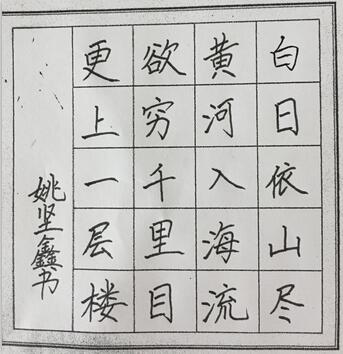 白日依山尽
黄河入海流
欲穷千里目
更上一层楼
姚坚鑫书